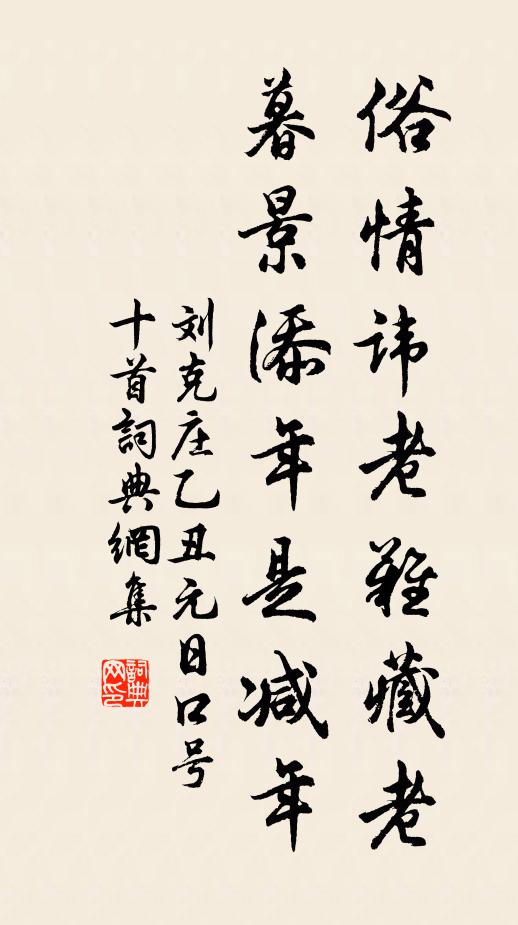 俗情讳老难藏老
暮景添年是减年
刘克庄乙丑元日口号
十首詞典網集
詞典网印